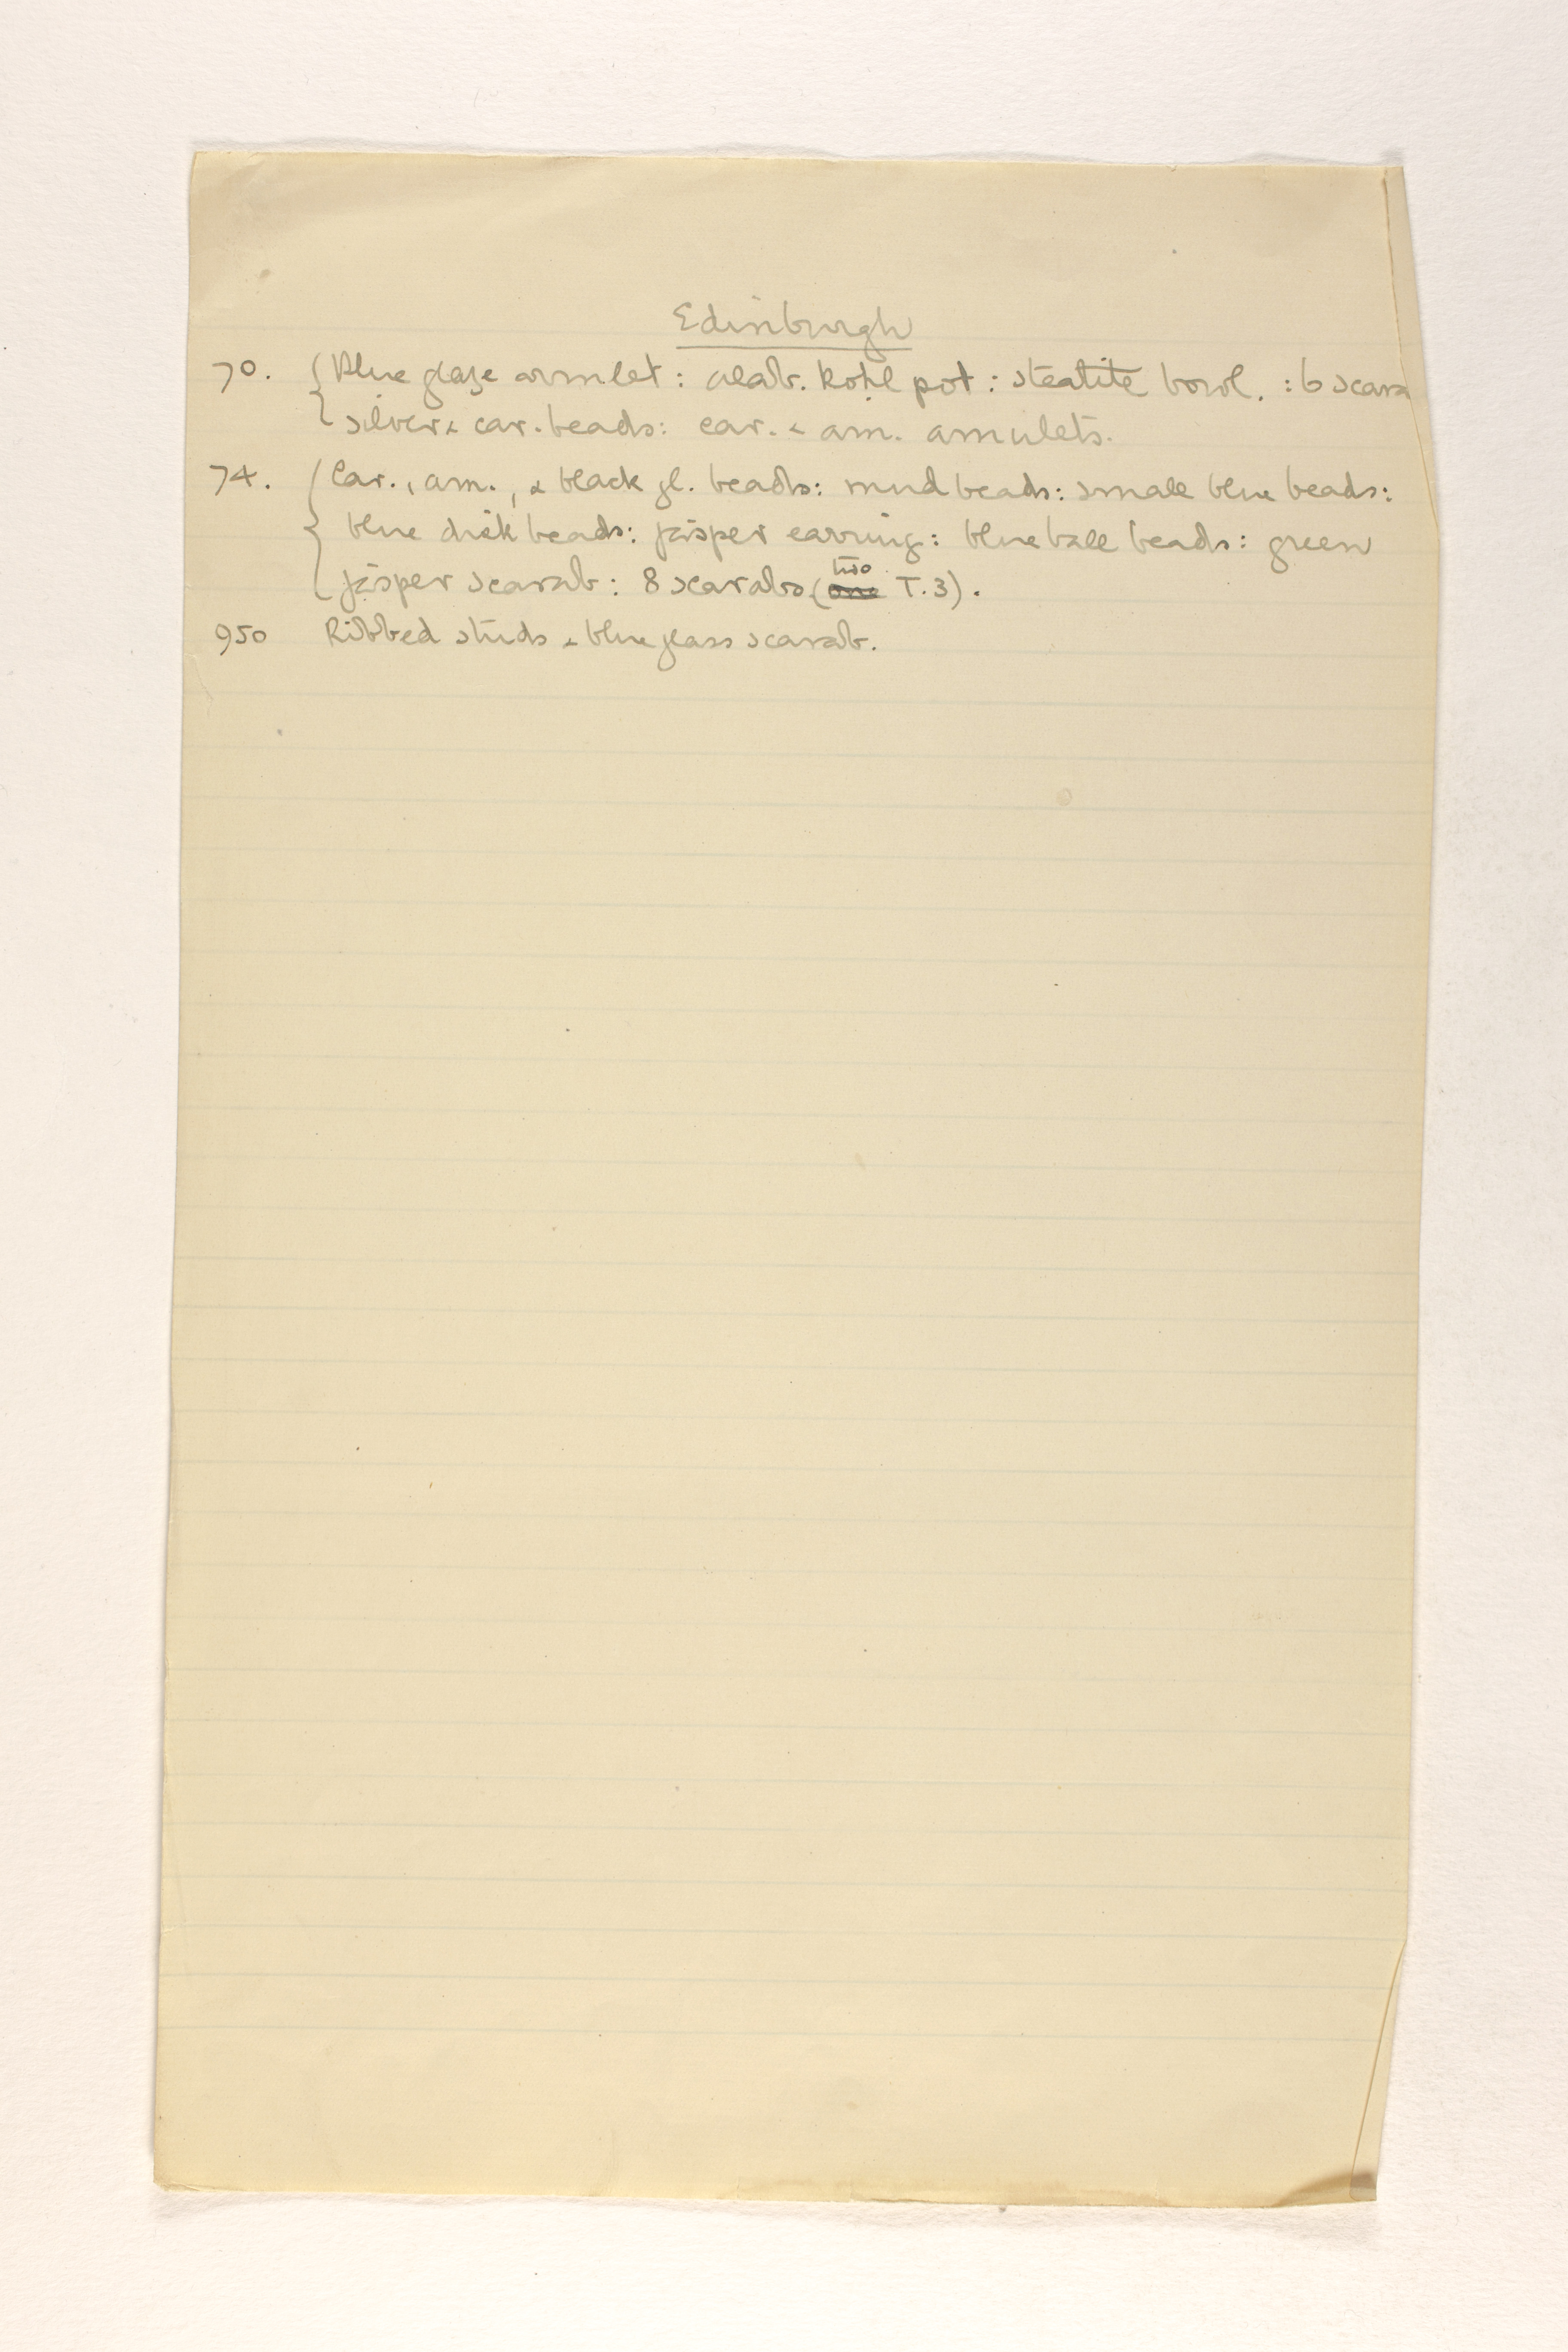 Edinburgh
70. Blue glaze armlet: alab. kohl pot: steatite bowl. : 6 scara
silver & car. beads: car. & am. amulets.
74. Car., am., & black gl. beads: mud beads: small blue beads:
blue disk beads: jasper earring: blue ball beads: green
two
jasper scarab: 8 scarabs (one T.3).
950 Ribbed studs & blue glass scarab.